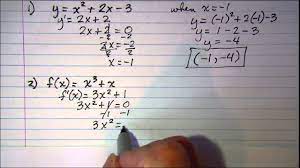 1) y = x² + 2x - 3
y' = 2x + 2
2x + 2 = 0
-2 -2
2x = -2
2 2
x = -1
when x = -1
y = (-1)² + 2(-1) - 3
y = 1 - 2 - 3
y = -4
(-1, -4)
2) f(x) = x³ + x
f'(x) = 3x² + 1
3x² + 1 = 0
-1 -1
3x² = -